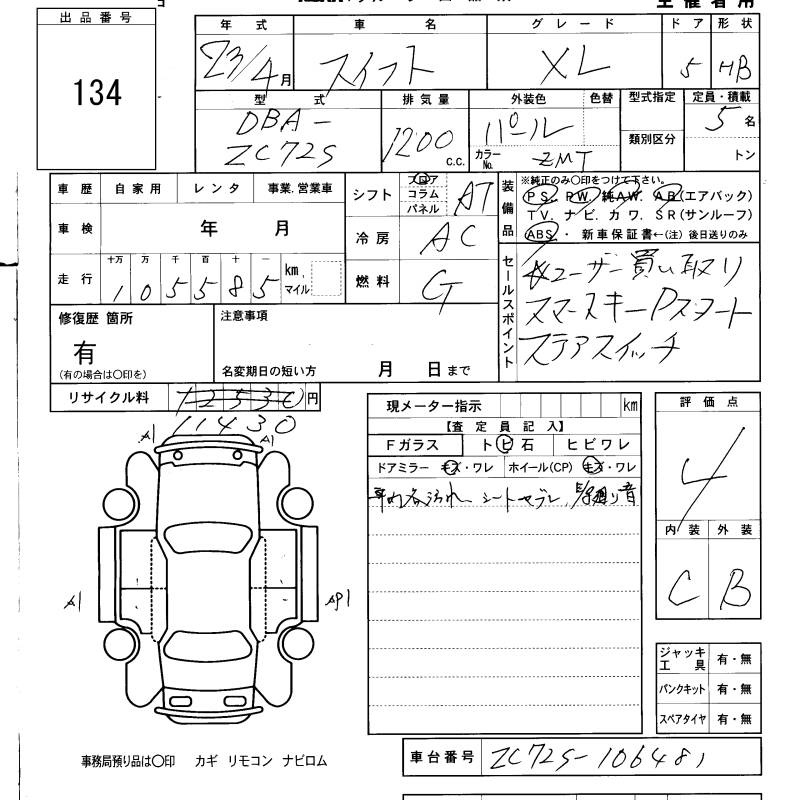 出品番号
134
年式 車名 グレード ドア 形状
23/4月 スイフト XL 5 HB
型式 排気量 外装色 色替 型式指定 定員・積載
DBA-ZC72S 1200 C.C. パール 類別区分 5名
カラーNo. ZMT トン
車歴 自家用 レンタ 事業.営業車
車検 年 月
走行 十万 万 千 百 十 一
105585 km マイル
シフト フロア コラム パネル AT
冷房 AC
燃料 G
装備品
※純正のみ〇印をつけて下さい。
PS. PW. 純AW. AB(エアバック)
TV. ナビ. カワ. SR(サンルーフ)
ABS.・新車保証書←(注)後日送りのみ
セールスポイント
ユーザー買い取り
スマートキーPスタート
ステアスイッチ
修復歴 箇所
有
(有の場合は〇印を)
注意事項
名変期日の短い方 月 日まで
リサイクル料 12530 円
11430
現メーター指示 km
【査定員記入】
Fガラス トビ石 ヒビワレ
ドアミラー キズ・ワレ ホイール(CP) キズ・ワレ
評価点
4
内装 外装
C B
A1 A1
A1 AP1
ジャッキ工具 有・無
パンクキット 有・無
スペアタイヤ 有・無
事務局預り品は〇印 カギ リモコン ナビロム
車台番号 ZC72S-106481